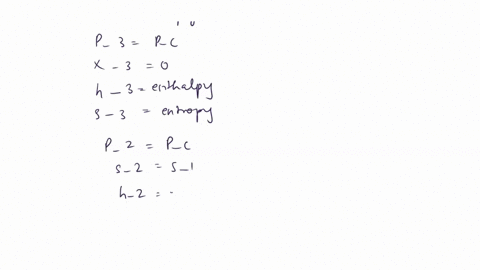 P_3 = P_C
x_3 = 0
h_3 = enthalpy
s_3 = entropy
P_2 = P_C
s_2 = s_1
h_2 =